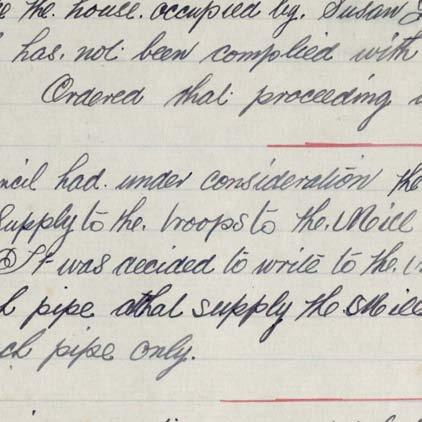 the. house. occupied by. Susan
has. not. been complied with
Ordered that proceeding
had. under consideration the
Supply to the. troops to the. Mill
It was decided to write to the.
pipe that supply the. Mill
pipe only.